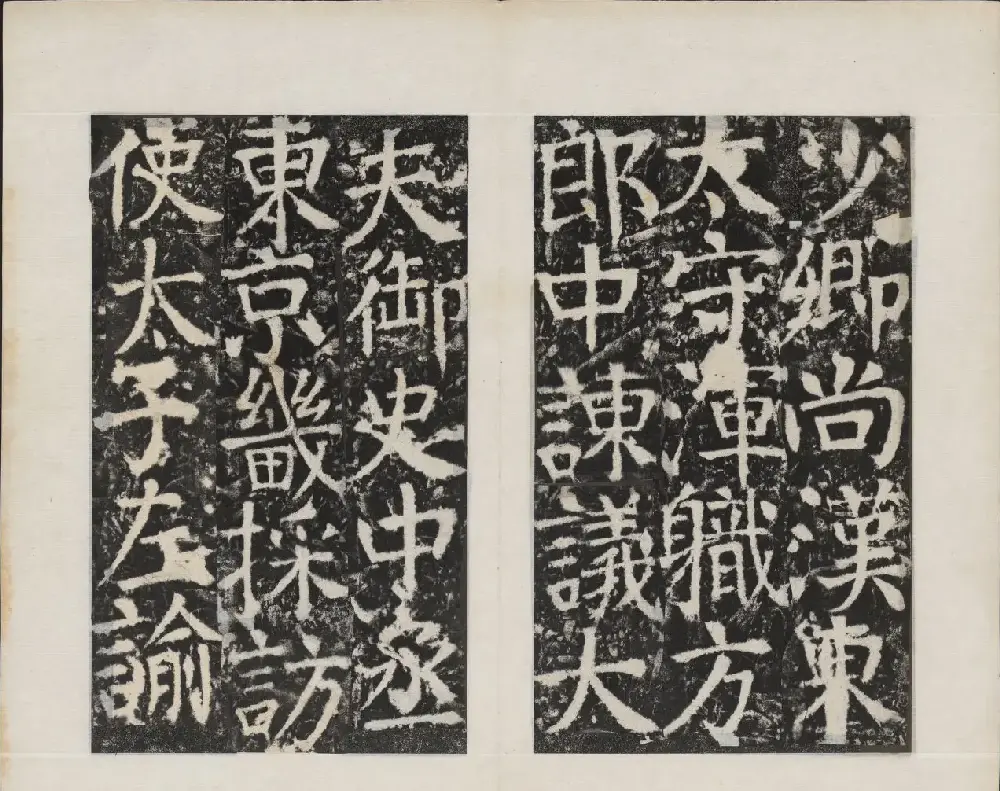 少卿尚漢東
太守渾軄方
郎中諫議大
夫御史中丞
東京畿採訪
使太子左諭